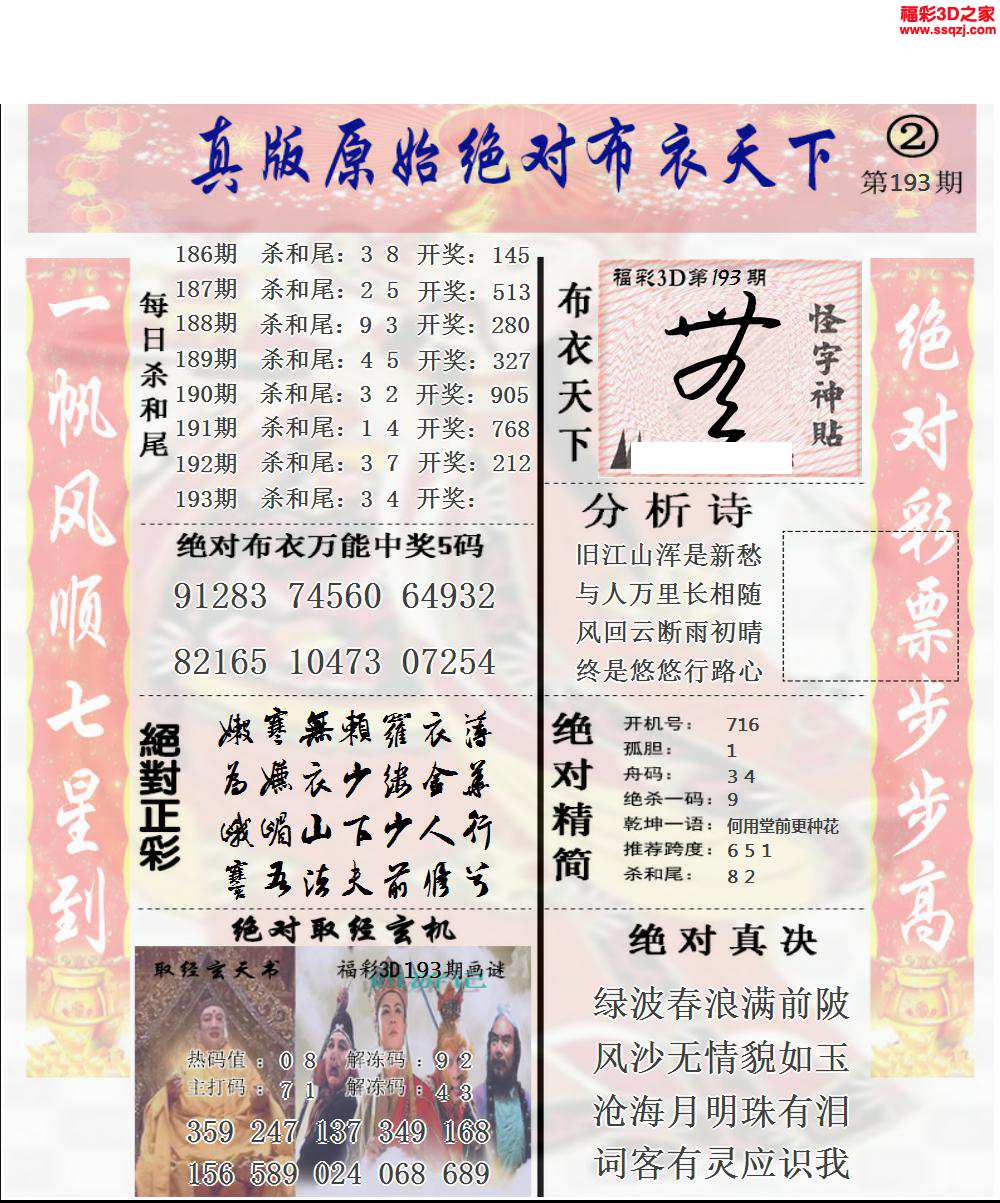 福彩3D之家
www.ssqzj.com
真版原始绝对布衣天下
②
第193期
一帆风顺七星到
每日杀和尾
186期 杀和尾：3 8 开奖：145
187期 杀和尾：2 5 开奖：513
188期 杀和尾：9 3 开奖：280
189期 杀和尾：4 5 开奖：327
190期 杀和尾：3 2 开奖：905
191期 杀和尾：1 4 开奖：768
192期 杀和尾：3 7 开奖：212
193期 杀和尾：3 4 开奖：
绝对布衣万能中奖5码
91283 74560 64932
82165 10473 07254
絕對正彩
嫩寒無賴羅衣薄
山下少人行
吾法夫前修兮
绝对取经玄机
取经玄天书
福彩3D193期画谜
热码值：0 8 解冻码：9 2
主打码：7 1 解冻码：4 3
359 247 137 349 168
156 589 024 068 689
布衣天下
福彩3D第193期
怪字神贴
分析诗
旧江山浑是新愁
与人万里长相随
风回云断雨初晴
终是悠悠行路心
绝对精简
开机号： 716
孤胆： 1
舟码： 3 4
绝杀一码：9
乾坤一语：何用堂前更种花
推荐跨度：6 5 1
杀和尾： 8 2
绝对真决
绿波春浪满前陂
风沙无情貌如玉
沧海月明珠有泪
词客有灵应识我
绝对彩票步步高